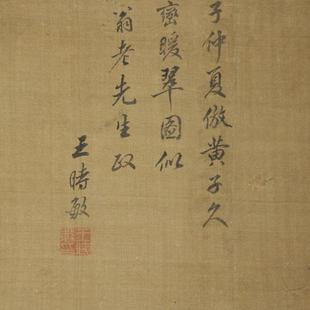 子仲夏倣黄子久
峦暖翠图似
翁老先生政
王時敏